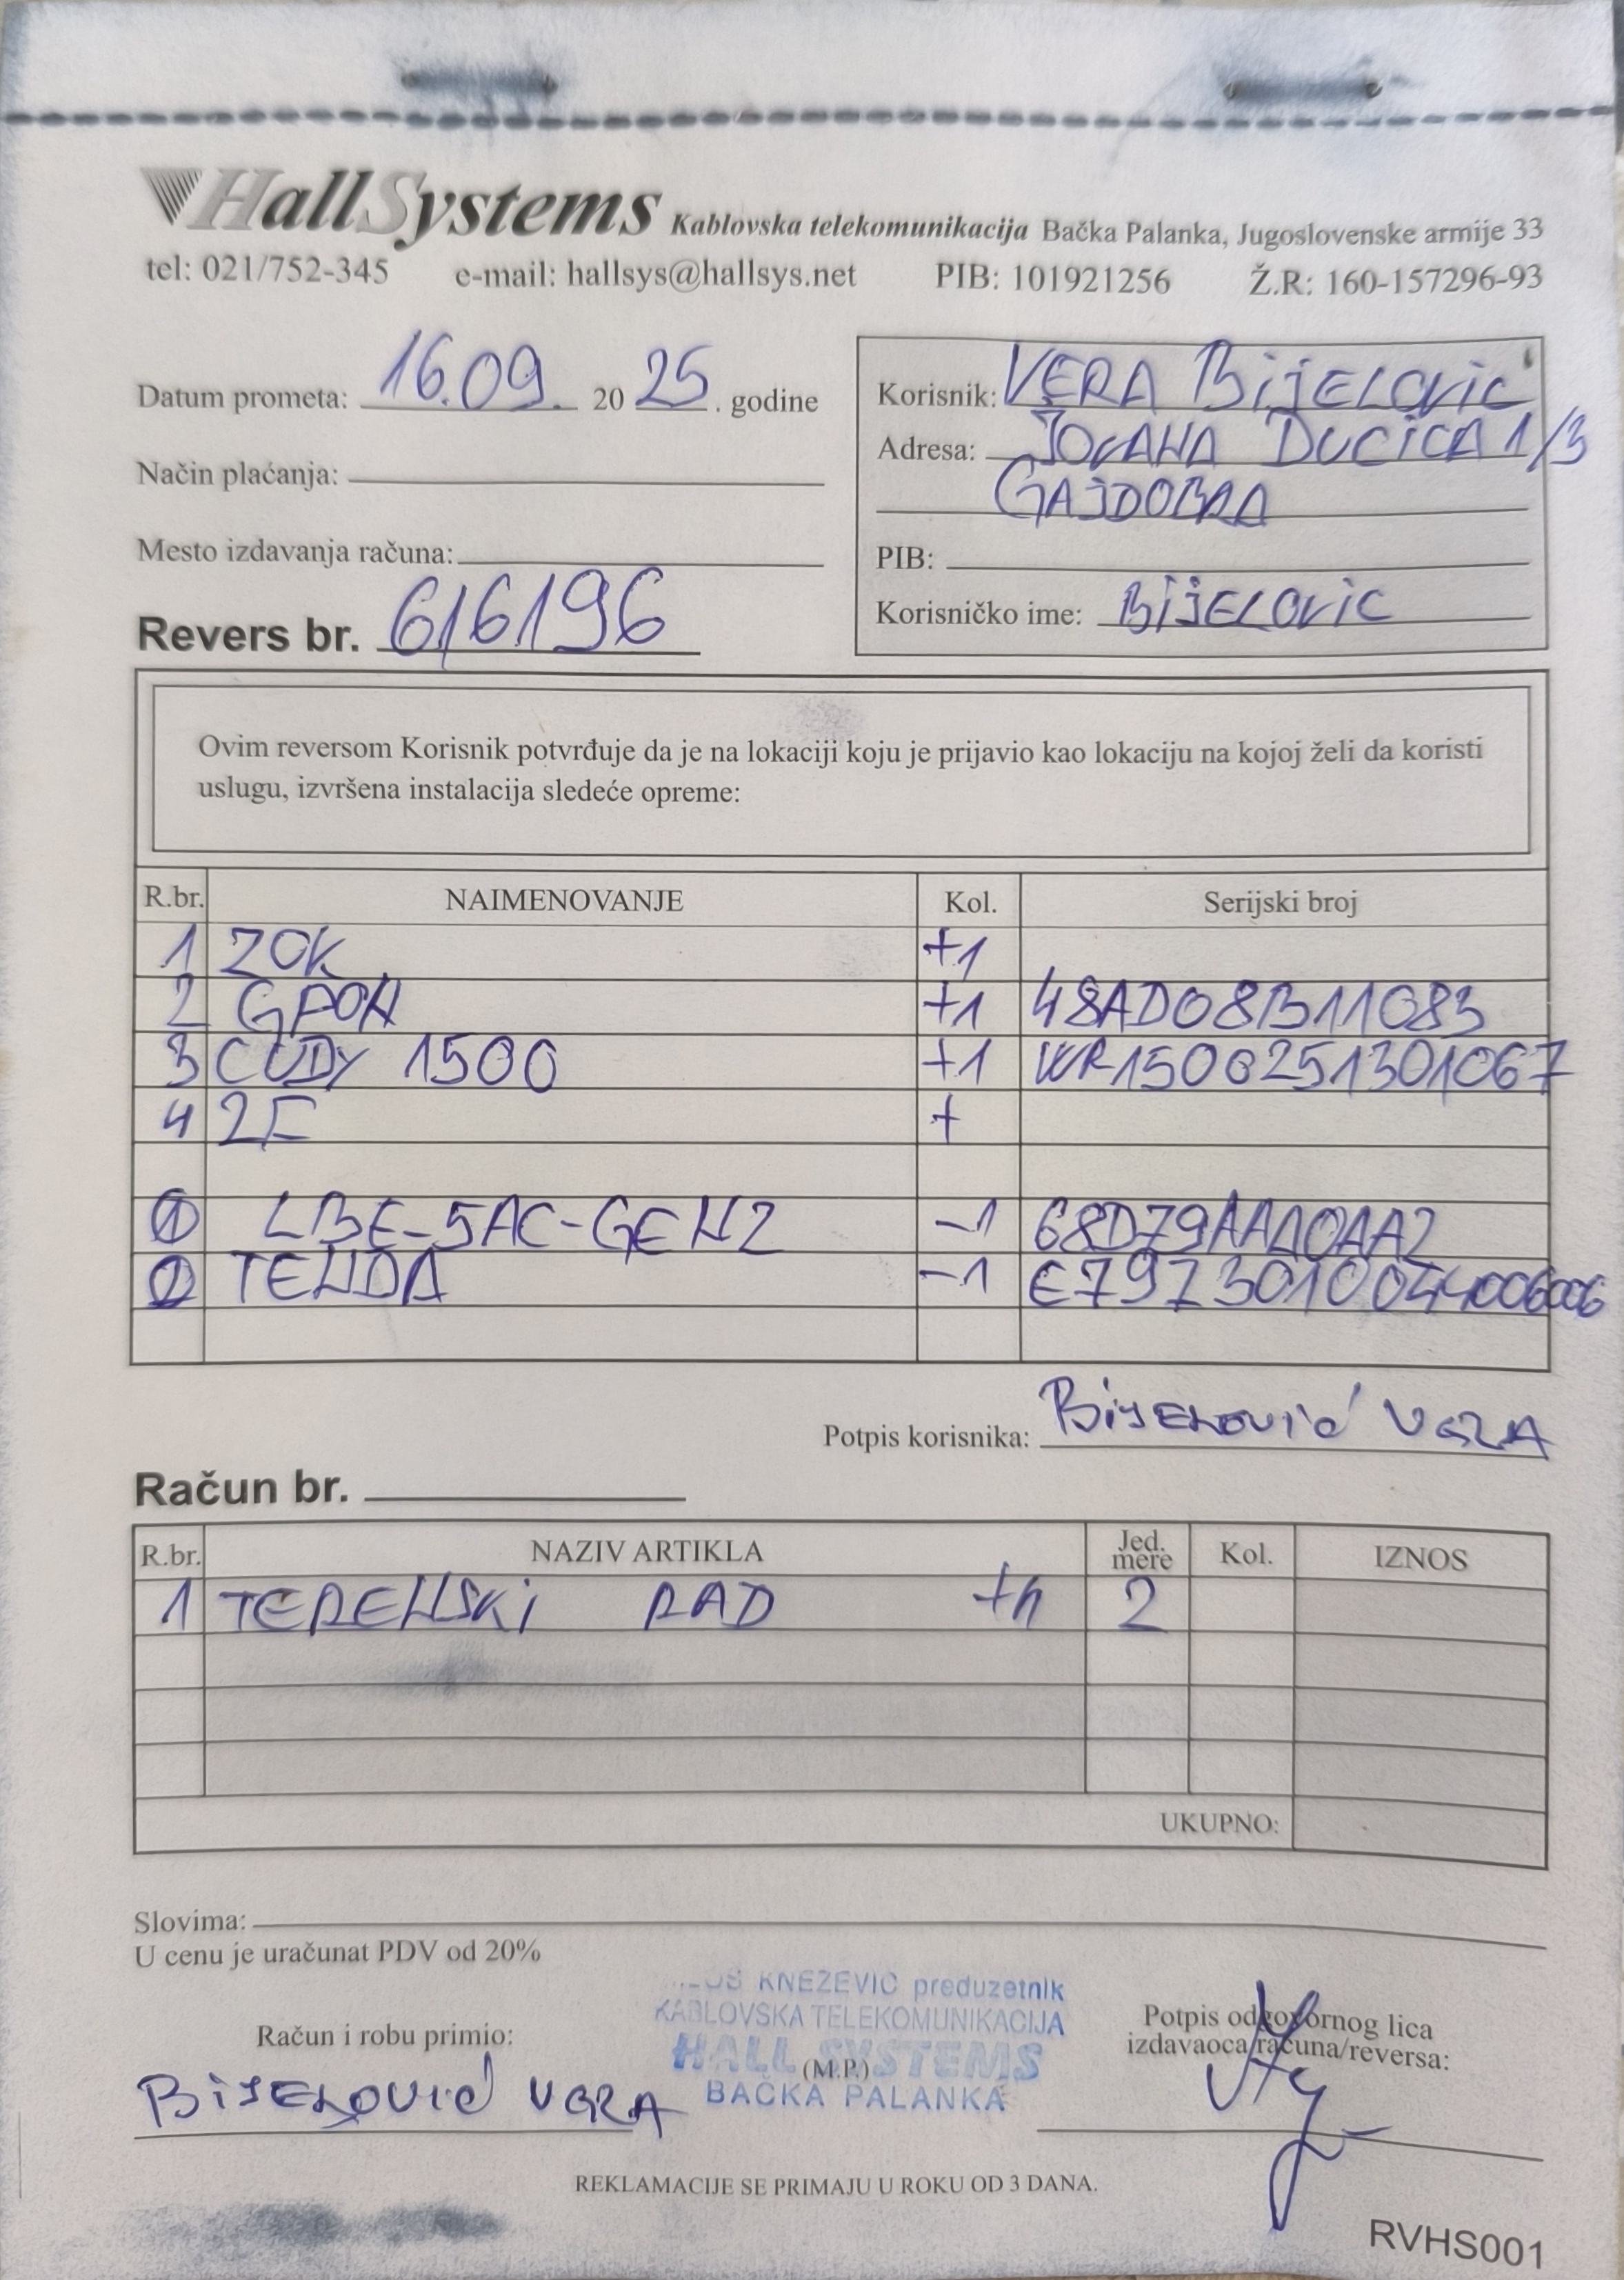 HallSystems Kablovska telekomunikacija Bačka Palanka, Jugoslovenske armije 33
tel: 021/752-345 e-mail: hallsys@hallsys.net PIB: 101921256 Ž.R: 160-157296-93
Datum prometa: 16.09. 2025. godine
Način plaćanja:
Mesto izdavanja računa:
Revers br. 616196
Korisnik: VERA BijELOVIC
Adresa: JOVANA DUCICA 1/3
GAJDOBRA
PIB:
Korisničko ime: BijELOVIC
Ovim reversom Korisnik potvrđuje da je na lokaciji koju je prijavio kao lokaciju na kojoj želi da koristi
uslugu, izvršena instalacija sledeće opreme:
R.br. NAIMENOVANJE Kol. Serijski broj
1 ZOK +1
2 GPON +1 48AD08B11083
3 CUDY 1500 +1 WR1500251301067
4 +
1 LBE-5AC-GEN2 -1 68D79AA10AA2
2 TENDA -1
Potpis korisnika: Bijelović Vera
Račun br.
R.br. NAZIV ARTIKLA Jed. mere Kol. IZNOS
1 TERENSKi RAD 2
UKUPNO:
Slovima:
U cenu je uračunat PDV od 20%
KNEŽEVIĆ preduzetnik
KABLOVSKA TELEKOMUNIKACIJA
HALL SYSTEMS
(M.P.)
BAČKA PALANKA
Račun i robu primio:
Bijelović Vera
Potpis odgovornog lica
izdavaoca računa/reversa:
REKLAMACIJE SE PRIMAJU U ROKU OD 3 DANA.
RVHS001